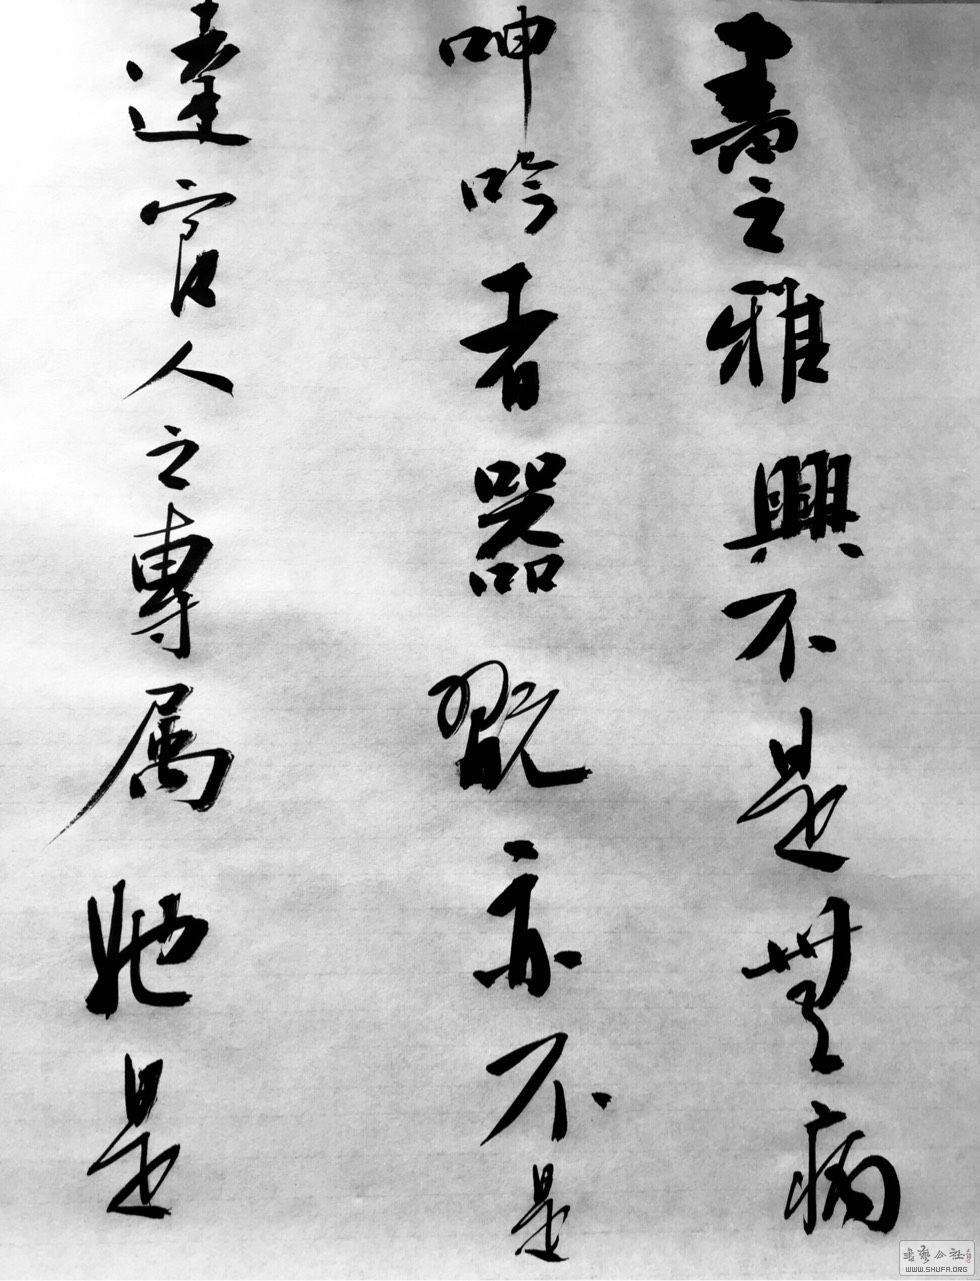 書之雅興不是無病
呻吟者器翫亦不是
達官人之專属她是
書藝公社
WWW.SHUFA.ORG